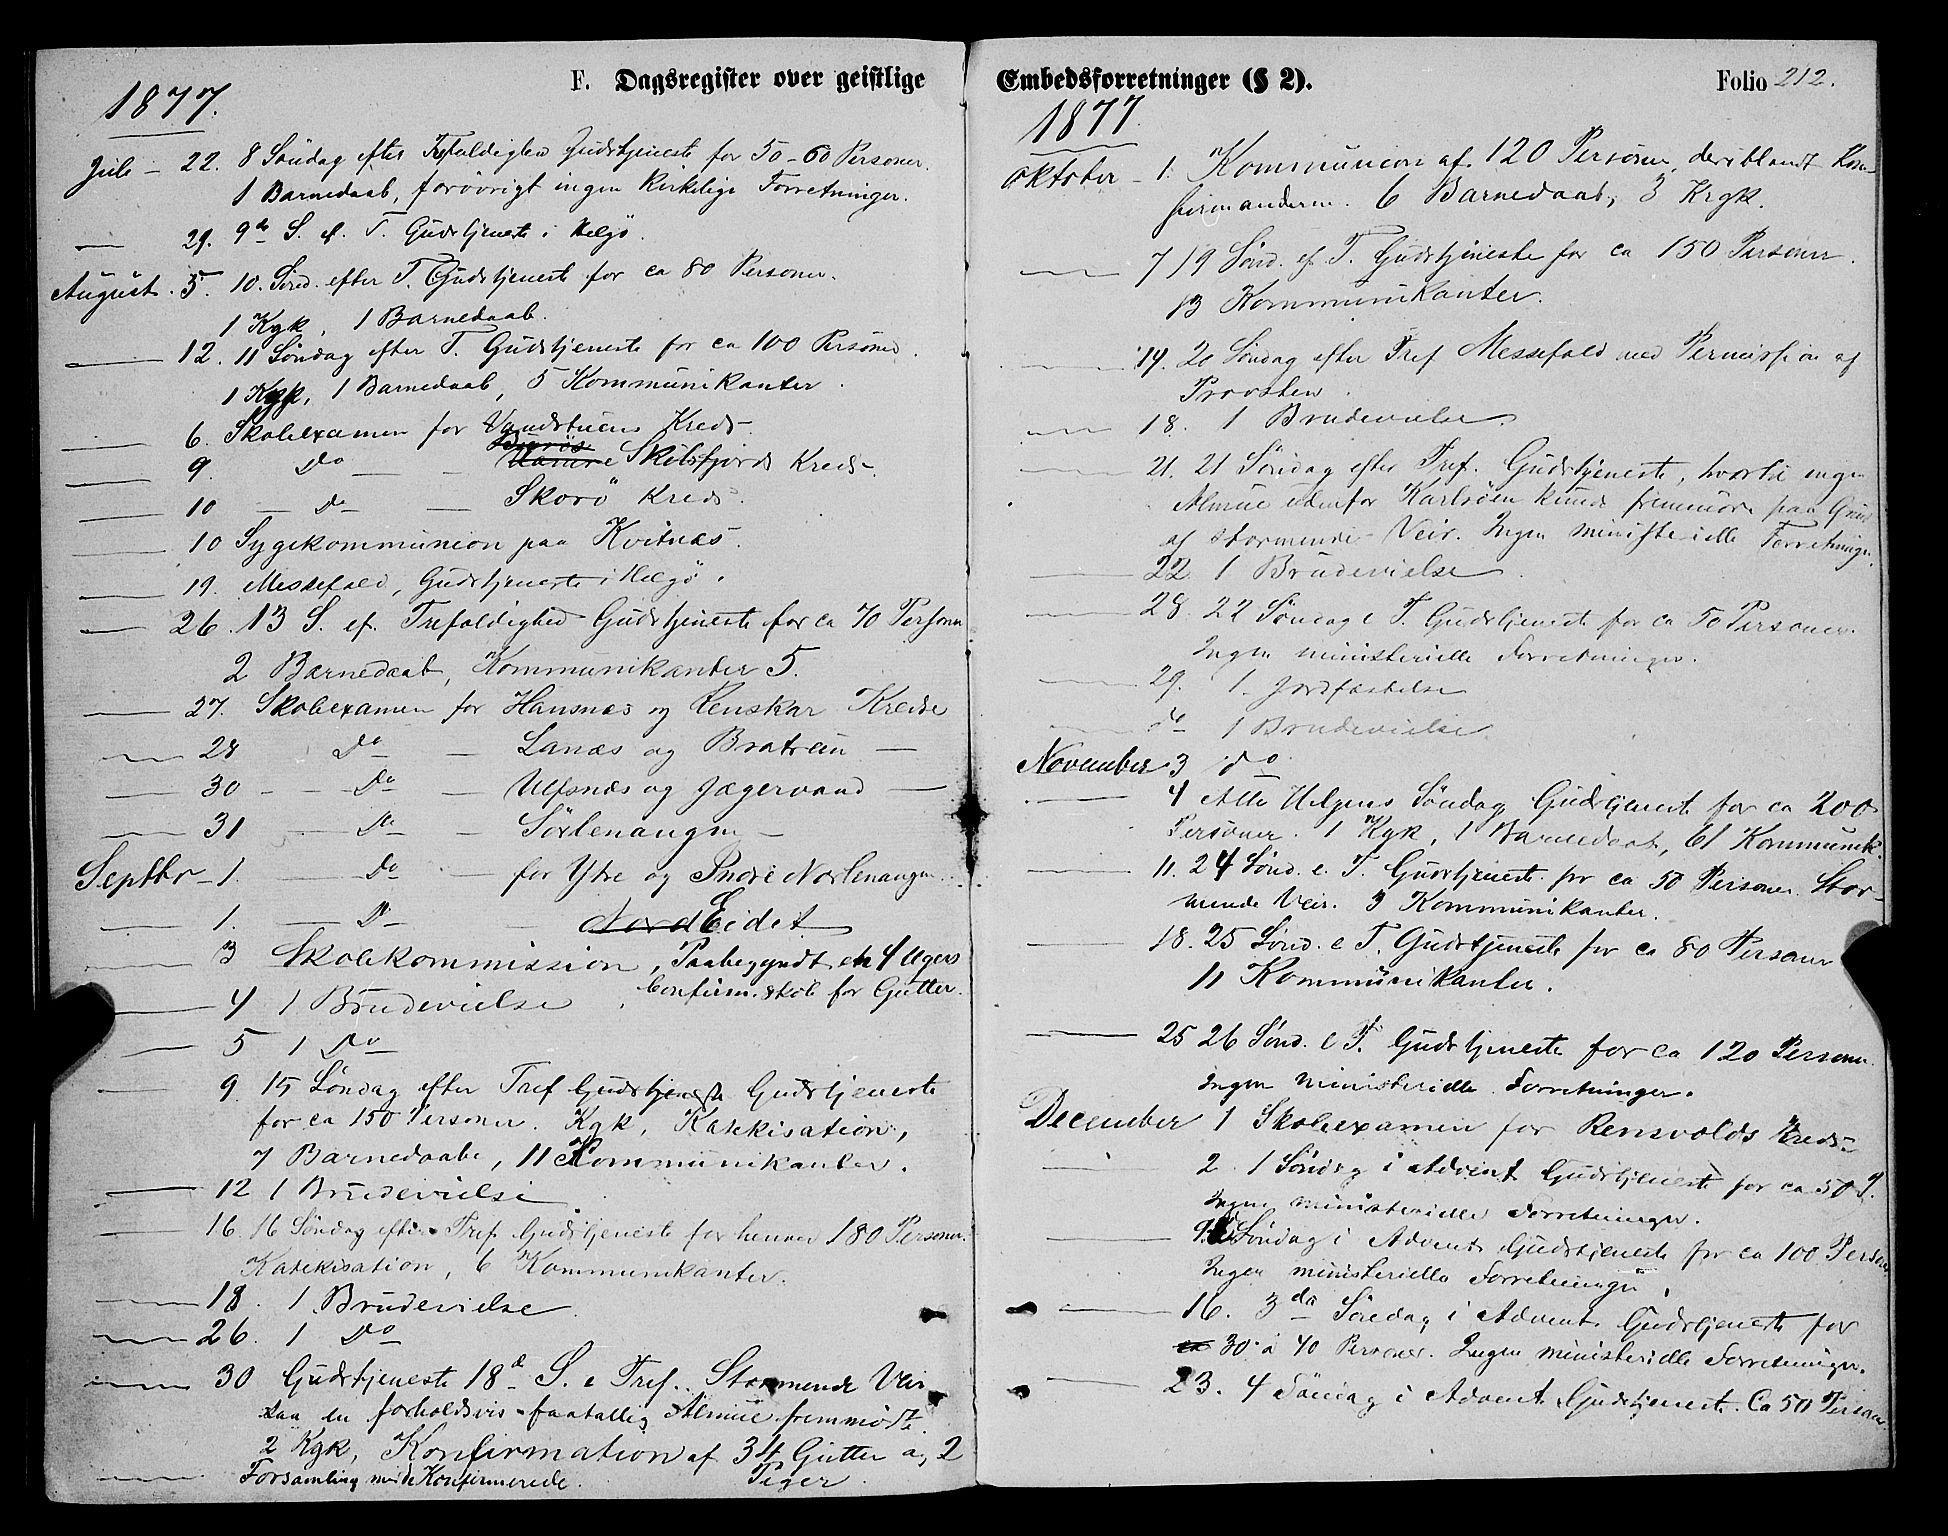 F. Dagsregister over geistlige
1877.
Juli — 22. 8 Søndag efter Trefoldighed Gudstjeneste for 50-60 Personer.
1 Barnedaab, forøvrigt ingen Kirkelige Forretninger.
— 29. 9de S. ef. T. Gudstjeneste i Helgö.
August. 5. 10. Sönd. efter T. Gudstjeneste for ca 80 Personer.
1 Kgk, 1 Barnedaab.
— 12. 11 Søndag efter T. Gudstjeneste for ca 100 Personer.
1 Kgk, 1 Barnedaab, 5 Kommunikanter.
— 6. Skoleexamen for Vandstuens Kreds
— 9. Do — — Skibsfjords Kreds
— 10 — Do — Skorö Kreds.
— 10 Sygekommunion paa Kvitnæs.
— 19. Messefald, Gudstjeneste i Helgö.
— 26. 13 S. ef. Trefoldighed Gudstjeneste for ca 70 Person
2 Barnedaab, Kommunikanter 5.
— 27. Skoleexamen for Hansnæs og Renskar Kredse
— 28 Do — Lanæs og Bratrein —
— 30 - - Do — Ulfsnæs og Jægervand —
— 31 — Do — Sörlenangen —
Septbr — 1. — Do — for Ytre og Indre Norlenangen.
— 1. — Do — Nord Eidet
— 3 Skolekommission, Paabegyndt en 4 Ugers
Confirm. skole for Gutter.
— 4 1 Brudevielse.
— 5 1 Do
— 9. 15 Søndag efter Tref Gudstjeneste Gudstjeneste
for ca 150 Personer. Kgk, Katekisation,
7 Barnedaabe, 11 Kommunikanter.
— 12 1 Brudevielse
— 16. 16 Søndag efter Tref. Gudstjeneste for henved 180 Personer.
Katekisation, 6 Kommunikanter.
— 18. 1. Brudevielse
— 26. 1 Do
— 30 Gudstjeneste 18de S. e Tref. Stormende Veir
saa en forholdsvis faatallig Almue fremmødte.
2 Kgk, Konfirmation af 34 Gutter og 2
Piger.
— Forsamling med de Konfirmerede.
Embedsforretninger (§ 2).
Folio 212.
1877.
Oktober — 1. Kommunion af 120 Personer, deriblandt Kon-
firmanderne. 6 Barnedaab, 3 Krgk.
— 7 19 Sönd. ef. T. Gudstjeneste for ca 150 Personer.
13 Kommunikanter.
— 14. 20 Søndag efter Tref Messefald med Permission af
Provsten.
— 18. 1 Brudevielse.
— 21. 21 Søndag efter Tref. Gudstjeneste, hvortil ingen
Almue udenfor Karlsöen kunde fremmöde paa Grund
af stormende Veir. Ingen ministerielle Forretninger.
— 22. 1 Brudevielse.
— 28. 22 Søndag e T. Gudstjeneste for ca 50 Personer.
Ingen ministerielle Forretninger.
— 29. 1. Jordfæstelse
— do 1 Brudevielse
November 3 do
— 4 Alle Helgens Søndag Gudstjeneste for ca 200
Personer. 1 Kgk, 1 Barnedaab, 61 Kommunik.
— 11. 24 Sönd. e. T. Gudstjeneste for ca 50 Personer. Stor-
mende Veir. 3 Kommunikanter.
— 18. 25 Sönd. e T. Gudstjeneste for ca 80 Personer
11 Kommunikanter.
— 25 26 Sönd. e T. Gudstjeneste for ca 120 Personer.
Ingen ministerielle Forretninger.
December 1 Skoleexamen for Rensvolds Kreds
— 2. 1 Søndag i Advent Gudstjeneste for ca 50 P.
Ingen ministerielle Forretninger.
— 9. Søndag i Advent Gudstjeneste for ca 100 Personer
Ingen ministerielle Forretninger.
— 16. 3die Søndag i Advent. Gudstjeneste for
ca 30 à 40 Personer. Ingen ministerielle Forretninger.
— 23. 4 Søndag i Advent Gudstjeneste. Ca 50 Personer